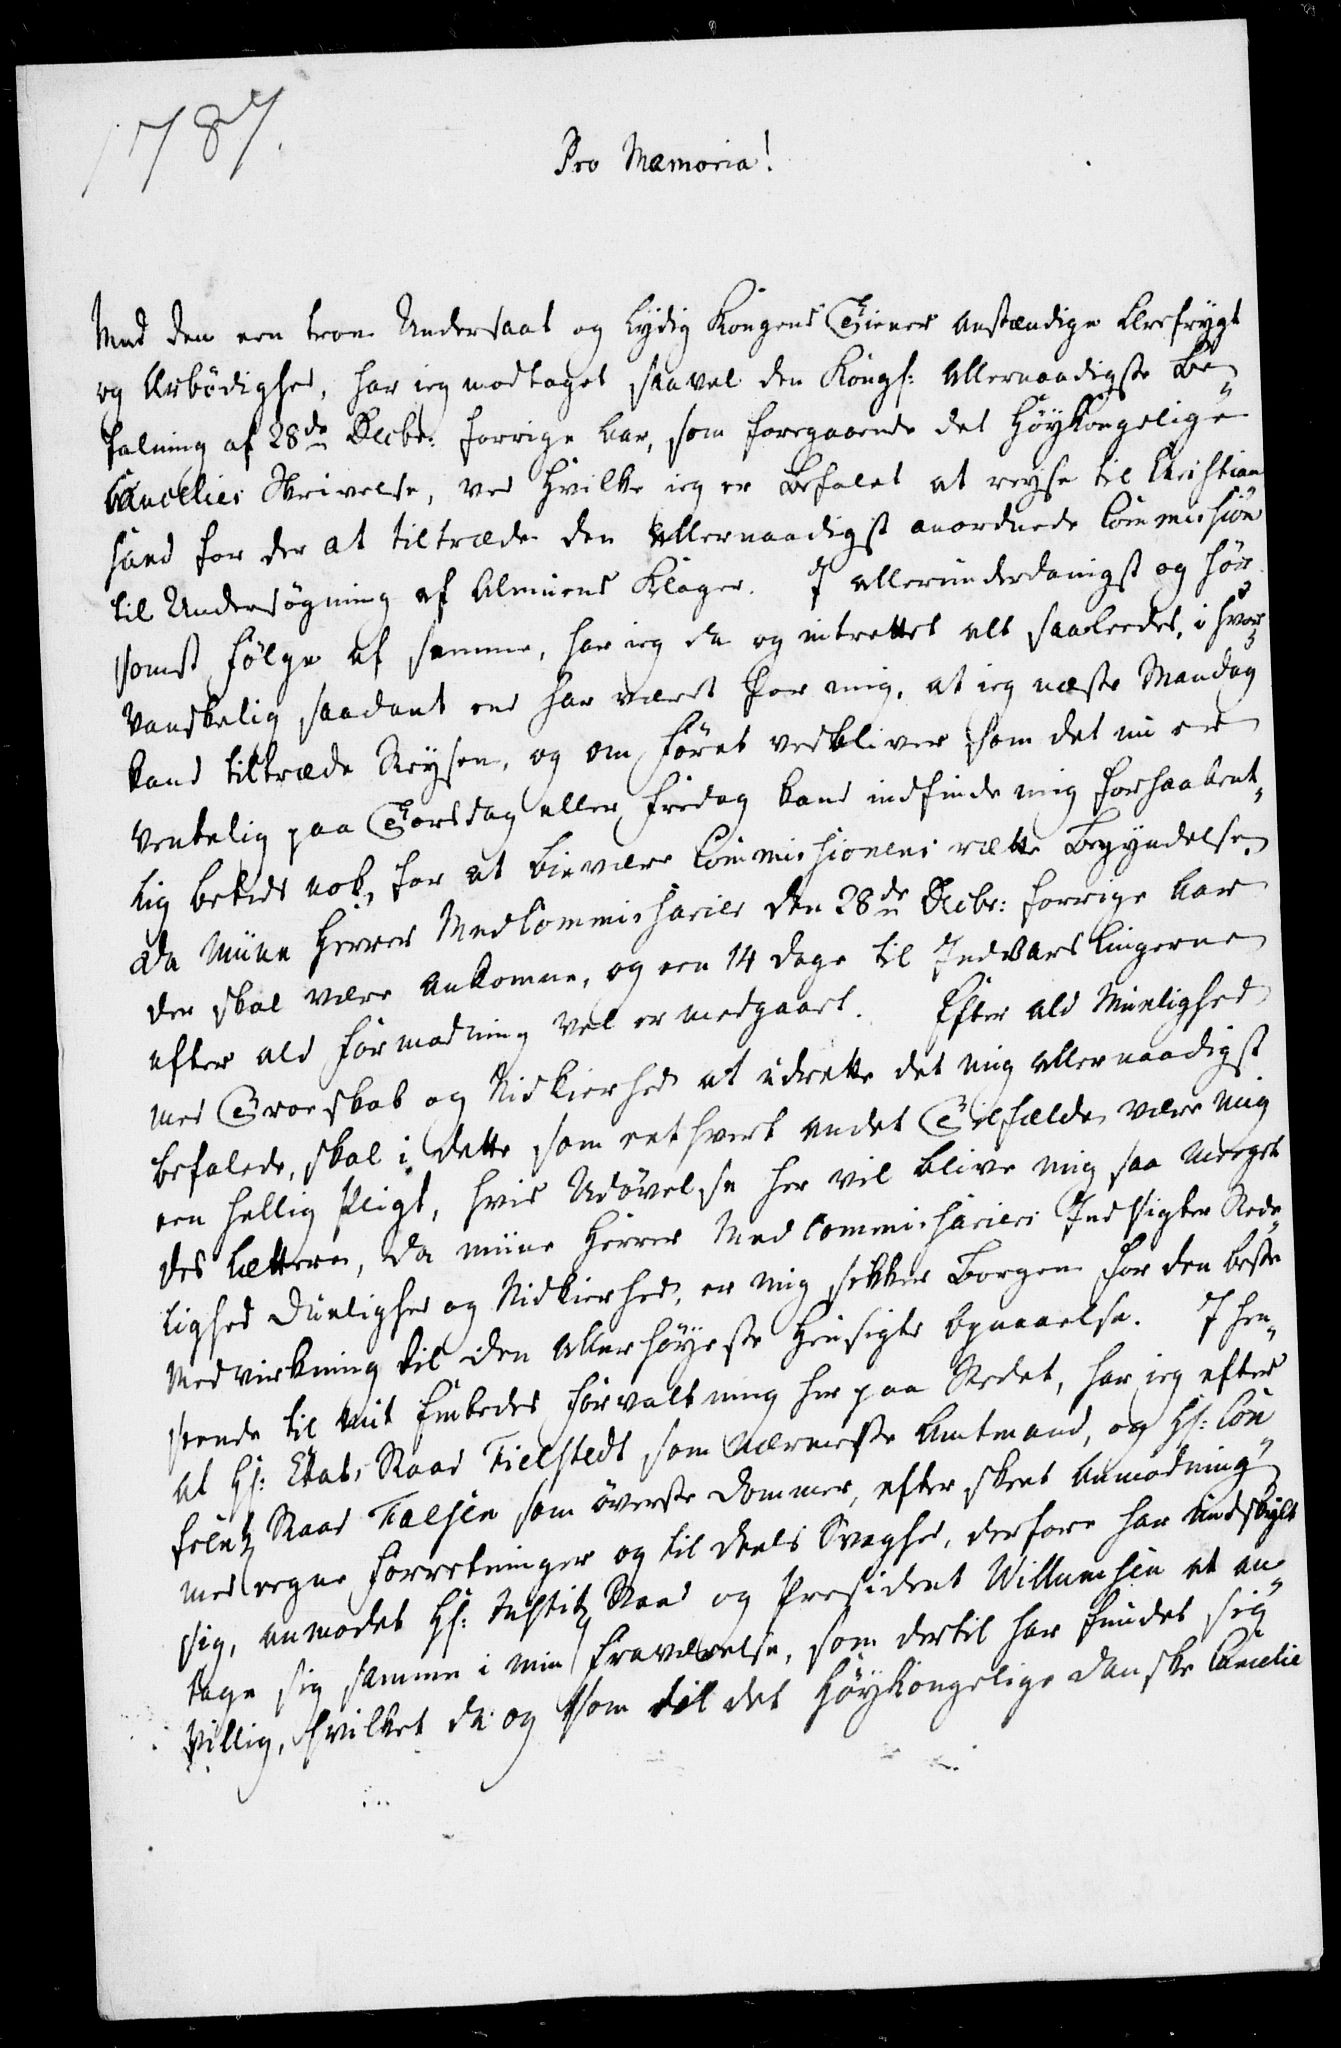 1787.
Pro Memoria!
Med den een troe Undersaat og lydig Kongens Tiener anstændige Ærefrygt
og Ærbödighed, har ieg modtaget saavel den Kongl: Allernaadigste Be„
falning af 28de Decbr: forrige Aar, som foregaaende det Höykongelige
Cancelies Skrivelse, ved hvilke ieg er befalet at reyse til Christian
sand for der at tiltræde den allernaadigst anordnede Commission
til Undersögning af Almuens Klager. I allerunderdanigst og hör„
somst Fölge af samme, har ieg da og indrettet alt saaledes, i hvor
vanskelig saadant end har været for mig, at ieg næste Mandag
kand tiltræde Reysen, og om Föret vedbliver som det nu er
ventelig paa Torsdag eller Fredag kand indfinde mig forhaabent„
lig betids nok, for at bievære Commissionens rette Begyndelse,
da mine Herrer MedCommissarier den 28de Decbr: forrige Aar
der skal være ankomne, og een 14 dage til Indvarslingerne
efter ald Formodning vel er medgaaet. Efter ald Muelighed
med Troeskab og Nidkierhed at udrette det mig allernaadigst
befalede, skal i dette som eethvert andet Tilfælde være mig
een hellig Pligt, hvis Udövelse her vil blive mig saa meeget
des lettere, da miine Herrer MedCommissariers Indsigter Rede„
lighed Duelighed og Nidkierhed, er mig sikker Borgen for den beste
Medvirkning til den Allerhöyeste Hensigts Opnaaelse. I hen„
seende til mit Embedes Forvaltning her paa Stedet, har ieg efter
at Hr: Etats Raad Fielstedt som nærmeste Amtmand, og Hr: Con„
ferentz Raad Falsen som överste Dommer, efter skeet Anmodning
med egne Forretninger og til deels Svaghed, derfore har undskyldt
sig, anmodet Hr: Justitz Raad og President Willumsen at an„
tage sig samme i min Fraværelse, som dertil har fundet sig
villig, hvilket da og som til det Höykongelige danske Cancelie